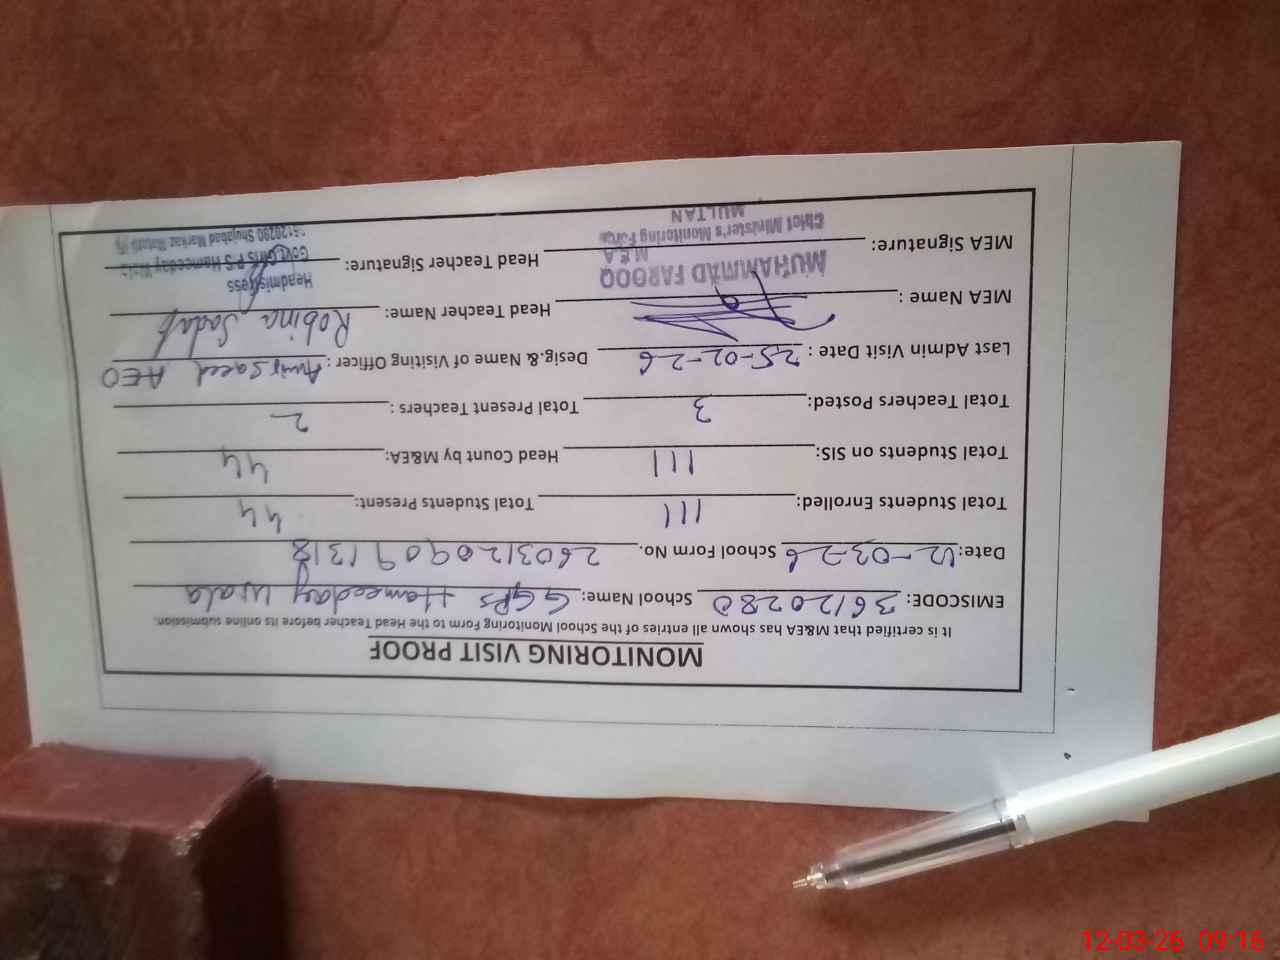 MONITORING VISIT PROOF
It is certified that M&EA has shown all entries of the School Monitoring Form to the Head Teacher before its online submission.
EMISCODE: 36120280 School Name: GGPS Hameeday Wala
Date: 12-03-26 School Form No. 26031209091318
Total Students Enrolled: 111 Total Students Present: 44
Total Students on SIS: 111 Head Count by M&EA: 44
Total Teachers Posted: 3 Total Present Teachers: 2
Last Admin Visit Date: 25-02-26 Desig.& Name of Visiting Officer: Saeed AEO
MEA Name: Head Teacher Name: Robina
MUHAMMAD FAROOQ
MEA
Chief Minister's Monitoring Force
MULTAN
MEA Signature: Head Teacher Signature:
Headmistress
Govt. Girls P/S Hameeday Wala
Shujabad Markaz
12-03-26 09:16